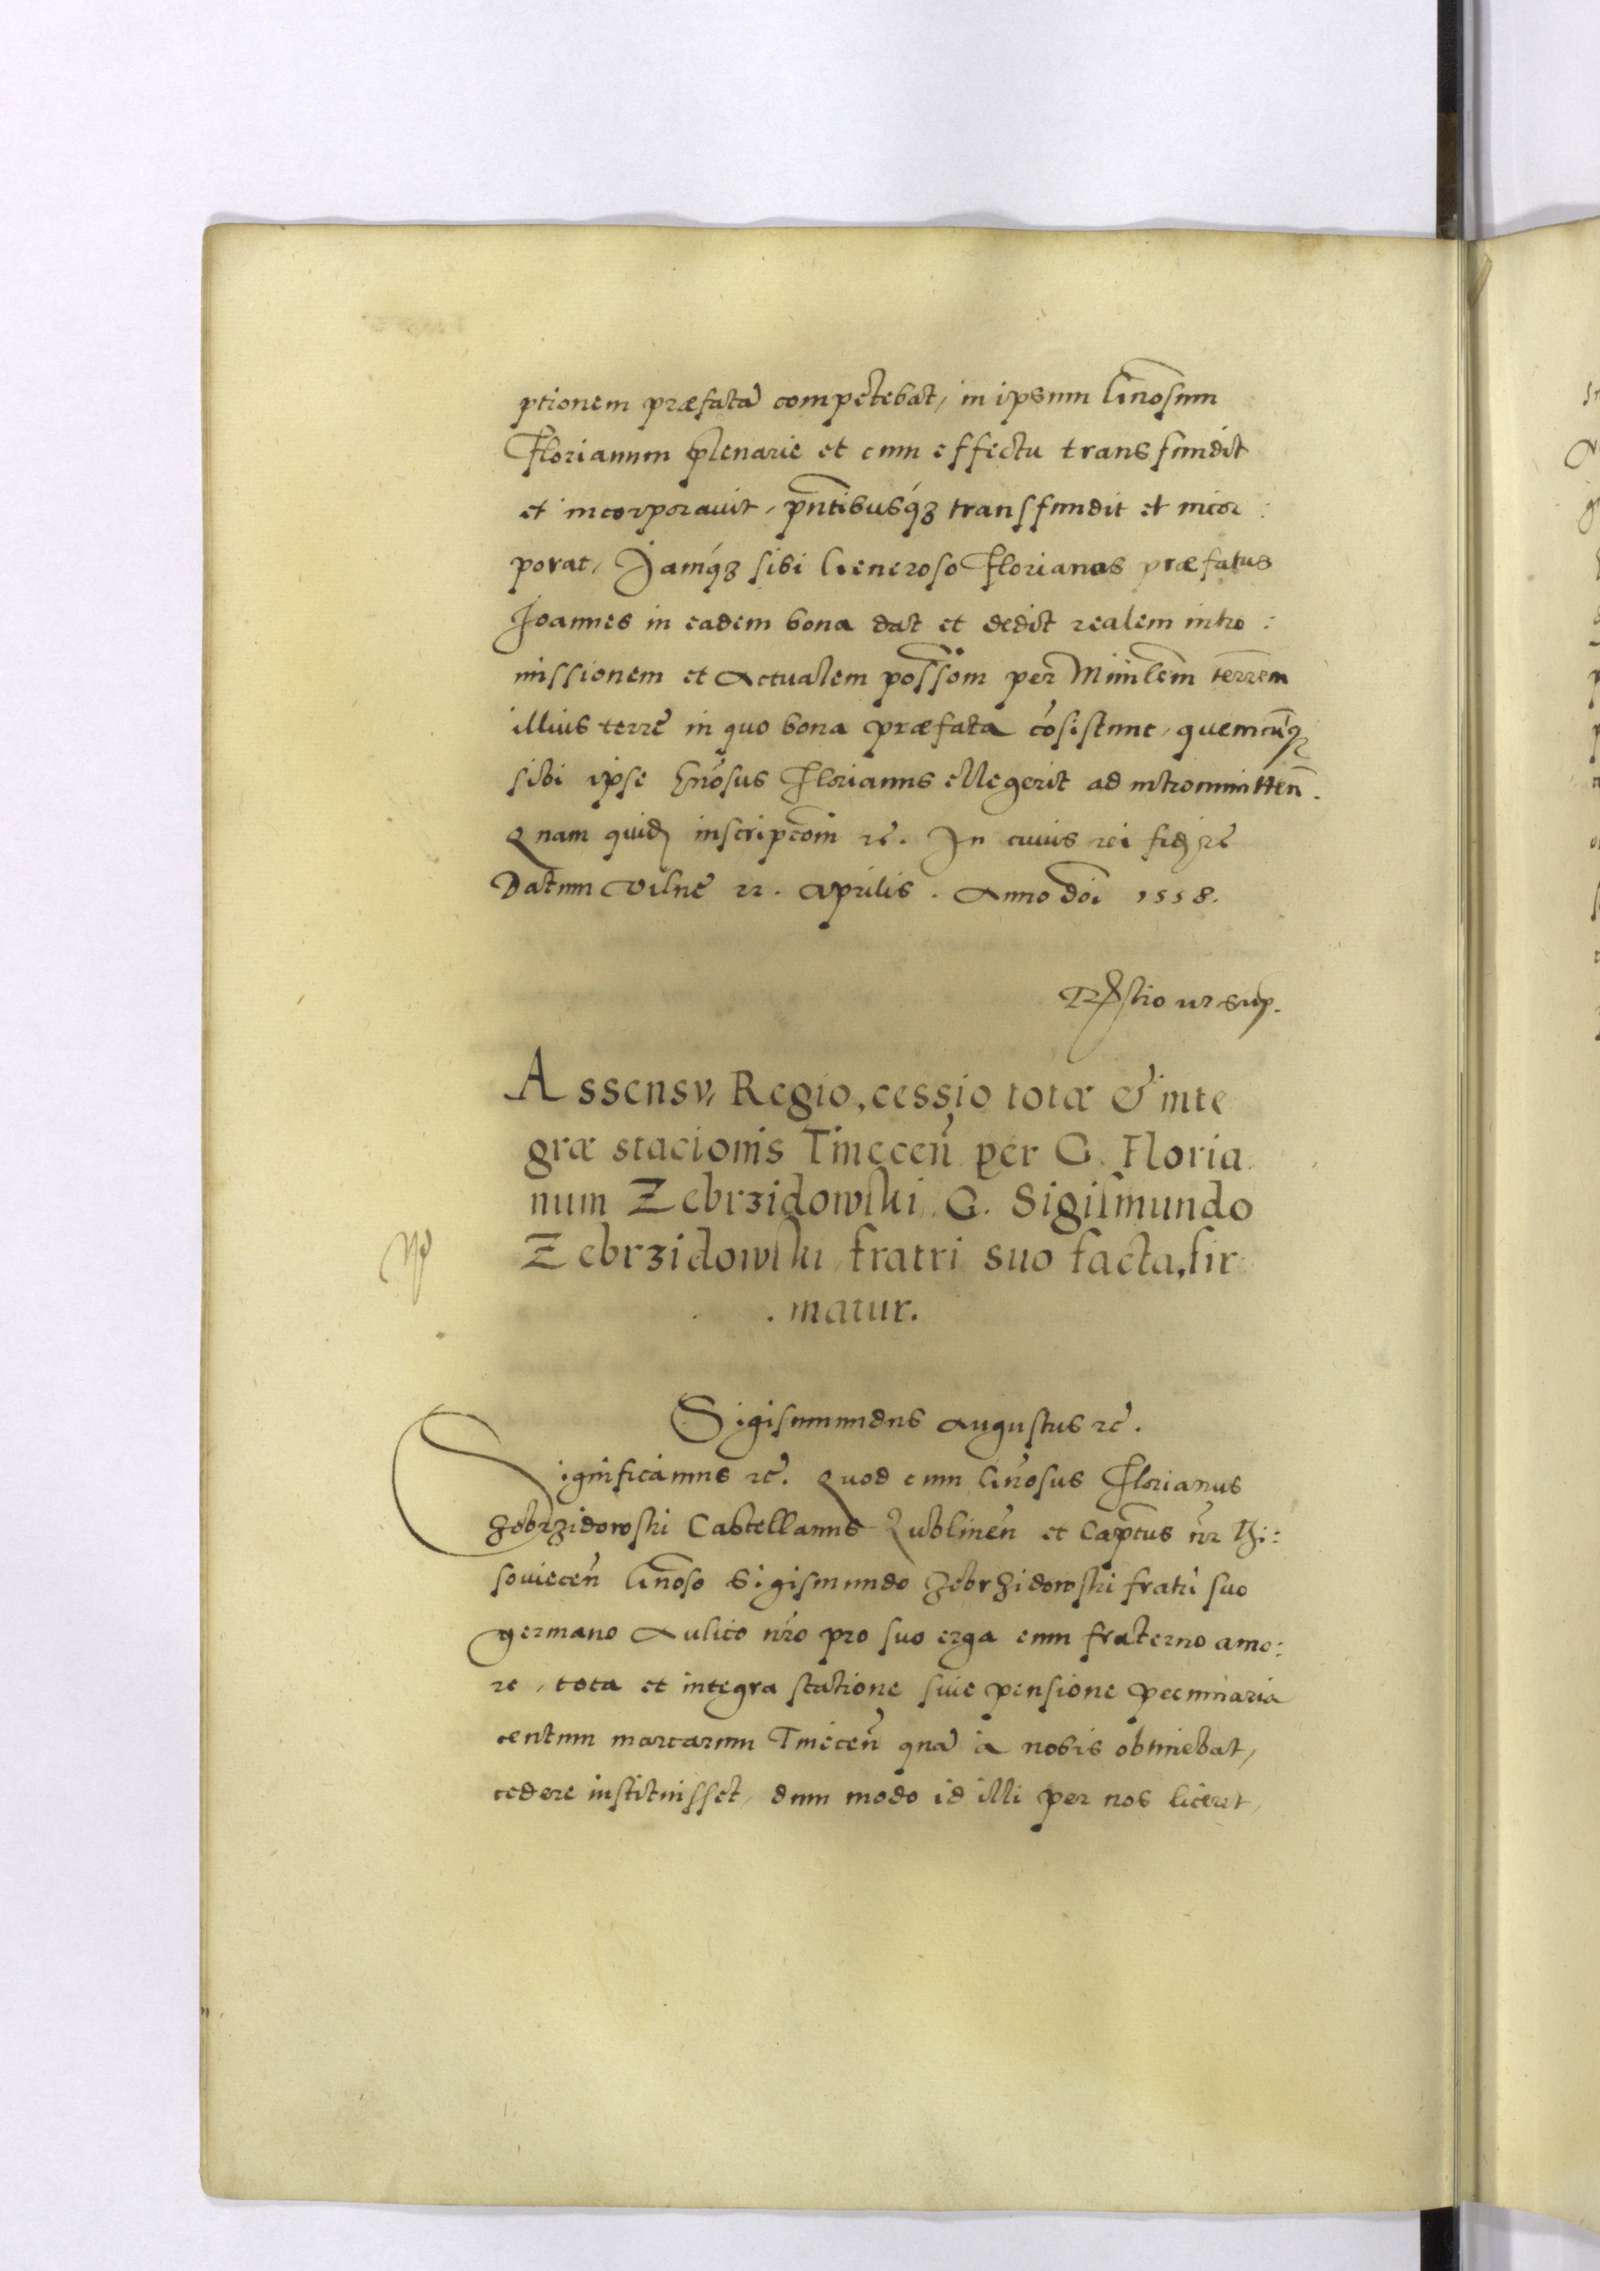 ptionem præfatā competebat, in ipsum Gñosum
Florianum plenarie et cum effectu transfundit
et incorporauit, pñtibusq́ꝫ transfundit et incor:
porat, Jamq́ꝫ sibi Generoso Florianos præfatus
Joannes in eadem bona dat et dedit realem intro:
missionem et Actualem possõem per Ministem terrem
illius terre in quo bona præfata cõsistunt, quemcūqꝫ
sibi ipse Gñosus Florianus ellegerit ad intromitten̄.
Quam quidē inscripcom̄ rc̄. In cuius rei fidē rc̄
Datum Vilne 22. Aprilis. Anno doī 1558.
Rstio ut sup.
Assensv, Regio, cessio totæ & inte
græ stacionis Tinecen̄ per G. Floria
num Zebrzidowski G. Sigismundo
Zebrzidowski fratri suo facta, fir
matur.
Sigismundus Augustus rc̄.
Significamus rc̄. Quod cum Gñosus Florianus
Zebrzidowski Castellanus Lublinen̄ et Captus nr̄
souiecen̄ Gñoso Sigismundo Zebrzidowski fratri suo
germano Aulico nr̄o pro suo erga eum fraterno amo:
re, tota et integra statione siue pensione pecuniaria
centum marcarum Tinecen̄ quā a nobis obtinebat,
cedere instituisset, dum modo id illi per nos liceret,